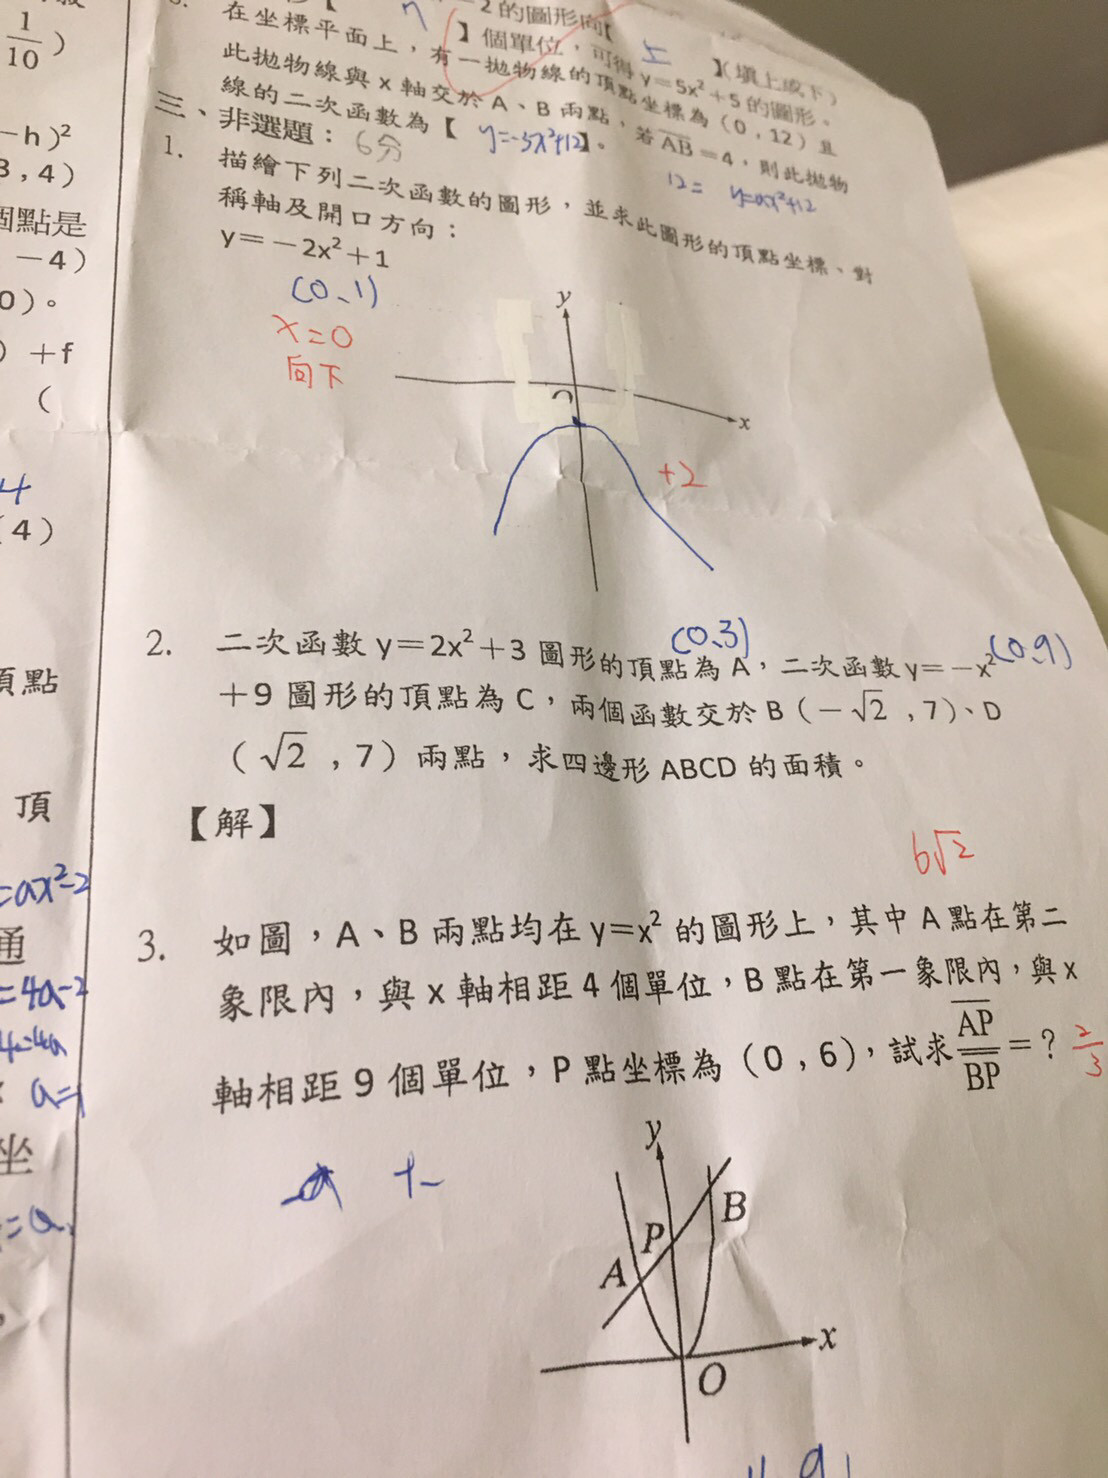 1/10）
－h）²
3，4）
個點是
－4）
0）。
）＋f
（
4
（4）
頂點
頂
=ax²-2
通
=4a-2
4=4a
a=1
坐
=a
－2 的圖形向【上】（填上或下）
】個單位，可得 y＝5x²＋5 的圖形。
在坐標平面上，有一拋物線的頂點坐標為（0，12）且
此拋物線與 x 軸交於 A、B 兩點，若 AB＝4，則此拋物
線的二次函數為【 y=-3x²+12】。
12= y=ax²+12
三、非選題：6分
1. 描繪下列二次函數的圖形，並求此圖形的頂點坐標、對
稱軸及開口方向：
y＝－2x²＋1
(0、1)
x=0
向下
y
x
+2
2. 二次函數 y＝2x²＋3 圖形的頂點為 A，二次函數 y＝－x²
(0、3)
(0、9)
＋9 圖形的頂點為 C，兩個函數交於 B（－√2，7）、D
（√2，7）兩點，求四邊形 ABCD 的面積。
【解】
6√2
3. 如圖，A、B 兩點均在 y=x² 的圖形上，其中 A 點在第二
象限內，與 x 軸相距 4 個單位，B 點在第一象限內，與 x
軸相距 9 個單位，P 點坐標為（0，6），試求 AP/BP＝？ 2/3
y
B
P
A
x
O